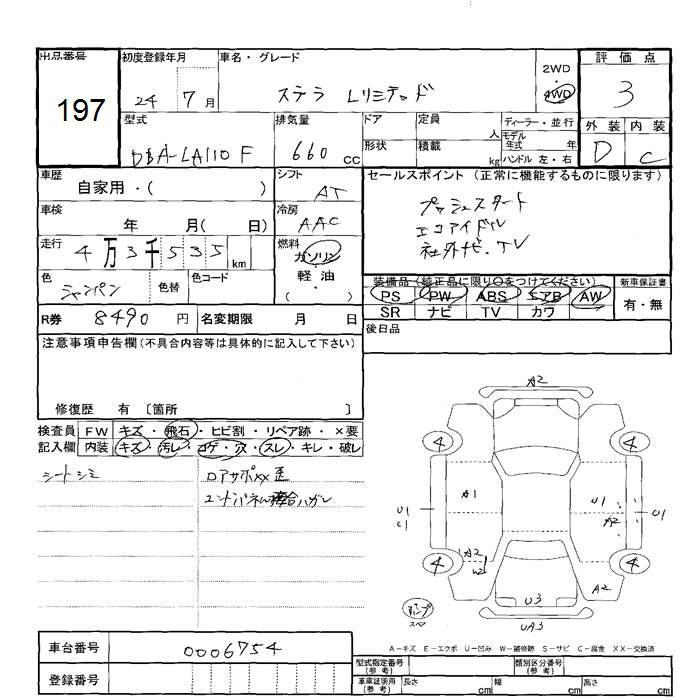 出品番号 初度登録年月 車名・グレード 2WD 評価点
197 24 7月 ステラ Lリミテッド ・4WD 3
型式 排気量 ドア 定員 人 ディーラー・並行 外装 内装
DBA-LA110F 660cc 形状 積載 kg モデル年式 年 D C
ハンドル 左・右
車歴 シフト セールスポイント (正常に機能するものに限ります)
自家用・( ) AT プッシュスタート
車検 冷房 エコアイドル
年 月( 日) AAC 社外ナビ・TV
走行 燃料
4万3千535km ガソリン
色 色替 色コード 軽・油 装備品(純正品に限り○をつけてください) 新車保証書
シャンパン ・( ) PS PW ABS エアB AW 有・無
SR ナビ TV カワ
R券 8490円 名変期限 月 日 後日品
注意事項申告欄(不具合内容等は具体的に記入して下さい)
修復歴 有 〔箇所 〕
検査員 FW キズ・飛石・ヒビ割・リペア跡・×要
記入欄 内装 キズ・汚レ・コゲ・穴・スレ・キレ・破レ
シートシミ
A2
4 4
A1 U1
U1 C1 A2 U1
A2 W2
4 4
A2
U3
UA3
A-キズ E-エクボ U-凹み W-補修跡 S-サビ C-腐食 XX-交換済
車台番号 0006754
型式指定番号(参考) 類別区分番号(参考)
登録番号 車庫証明用(参考) 長さ cm 幅 cm 高さ cm